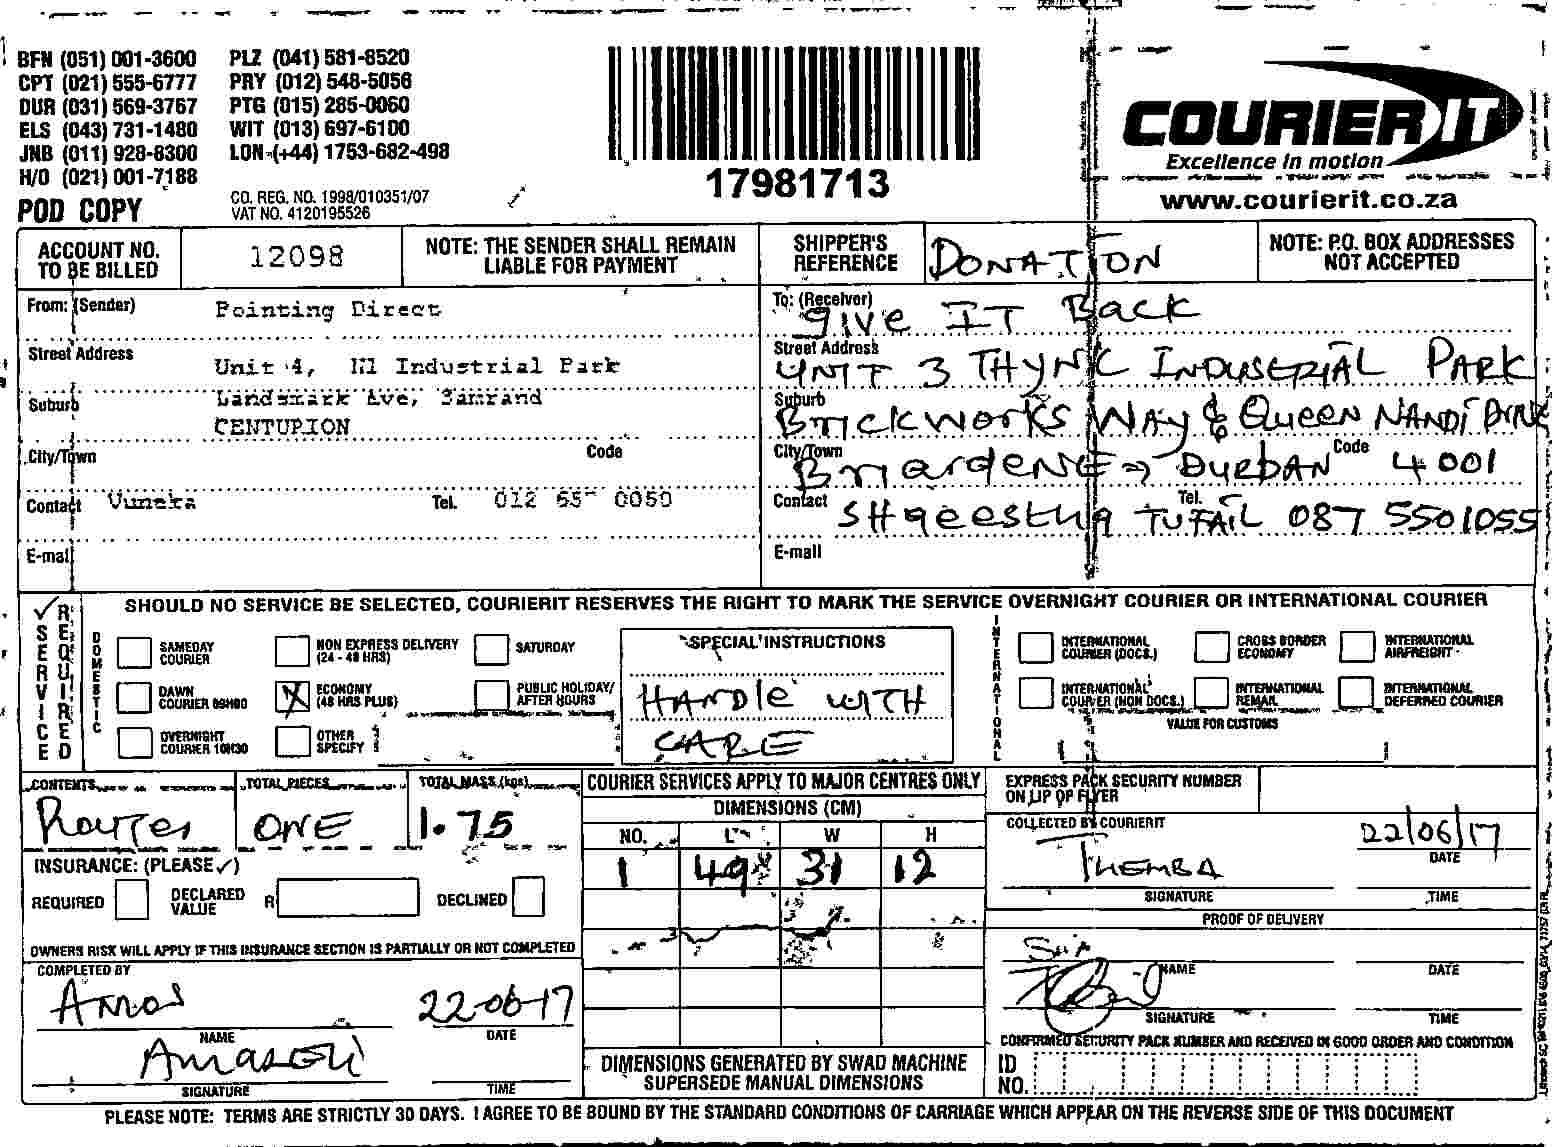 BFN (051) 001-3600 PLZ (041) 581-8520
CPT (021) 555-6777 PRY (012) 548-5056
DUR (031) 569-3767 PTG (015) 285-0060
ELS (043) 731-1480 WIT (013) 697-6100
JNB (011) 928-8300 LON (+44) 1753-682-498
H/O (021) 001-7188
POD COPY
CO. REG. NO. 1998/010351/07
VAT NO. 4120195526
17981713
COURIER IT
Excellence in motion
www.courierit.co.za
ACCOUNT NO. TO BE BILLED 12098
NOTE: THE SENDER SHALL REMAIN LIABLE FOR PAYMENT
SHIPPER'S REFERENCE DONATION
NOTE: P.O. BOX ADDRESSES NOT ACCEPTED
From: (Sender) Pointing Direct
Street Address Unit 4, N1 Industrial Park
Suburb Landsmark Ave, Samrand
CENTURION
City/Town Code
Contact Vuneka Tel. 012 65 0050
E-mail
To: (Receiver) Give IT Back
Street Address UNIT 3 THYNK INDUSTRIAL PARK
Suburb BRICKWORKS WAY & QUEEN NANDI DRIVE
City/Town BRIARDENE DURBAN Code 4001
Contact SHAEESTHA TUFAIL Tel. 087 5501055
E-mail
✓ SERVICE REQUIRED
SHOULD NO SERVICE BE SELECTED, COURIERIT RESERVES THE RIGHT TO MARK THE SERVICE OVERNIGHT COURIER OR INTERNATIONAL COURIER
DOMESTIC
SAMEDAY COURIER
NON EXPRESS DELIVERY (24 - 48 HRS)
SATURDAY
DAWN COURIER 09H00
X ECONOMY (48 HRS PLUS)
PUBLIC HOLIDAY/ AFTER HOURS
OVERNIGHT COURIER 10H30
OTHER SPECIFY
SPECIAL INSTRUCTIONS
HANDLE WITH
CARE
INTERNATIONAL
INTERNATIONAL COURIER (DOCS.)
CROSS BORDER ECONOMY
INTERNATIONAL AIRFREIGHT
INTERNATIONAL COURIER (NON DOCS.)
INTERNATIONAL REMAIL
INTERNATIONAL DEFERRED COURIER
VALUE FOR CUSTOMS
CONTENTS Router
TOTAL PIECES ONE
TOTAL MASS (kgs) 1.75
INSURANCE: (PLEASE ✓)
REQUIRED DECLARED VALUE R DECLINED
OWNERS RISK WILL APPLY IF THIS INSURANCE SECTION IS PARTIALLY OR NOT COMPLETED
COMPLETED BY
Amos 22-06-17
NAME DATE
SIGNATURE TIME
COURIER SERVICES APPLY TO MAJOR CENTRES ONLY
DIMENSIONS (CM)
NO. L W H
1 49 31 12
DIMENSIONS GENERATED BY SWAD MACHINE
SUPERSEDE MANUAL DIMENSIONS
EXPRESS PACK SECURITY NUMBER ON LIP OF FLYER
COLLECTED BY COURIERIT
THEMBA 22/06/17
DATE
SIGNATURE TIME
PROOF OF DELIVERY
NAME DATE
SIGNATURE TIME
CONFIRMED SECURITY PACK NUMBER AND RECEIVED IN GOOD ORDER AND CONDITION
ID NO.
PLEASE NOTE: TERMS ARE STRICTLY 30 DAYS. I AGREE TO BE BOUND BY THE STANDARD CONDITIONS OF CARRIAGE WHICH APPEAR ON THE REVERSE SIDE OF THIS DOCUMENT